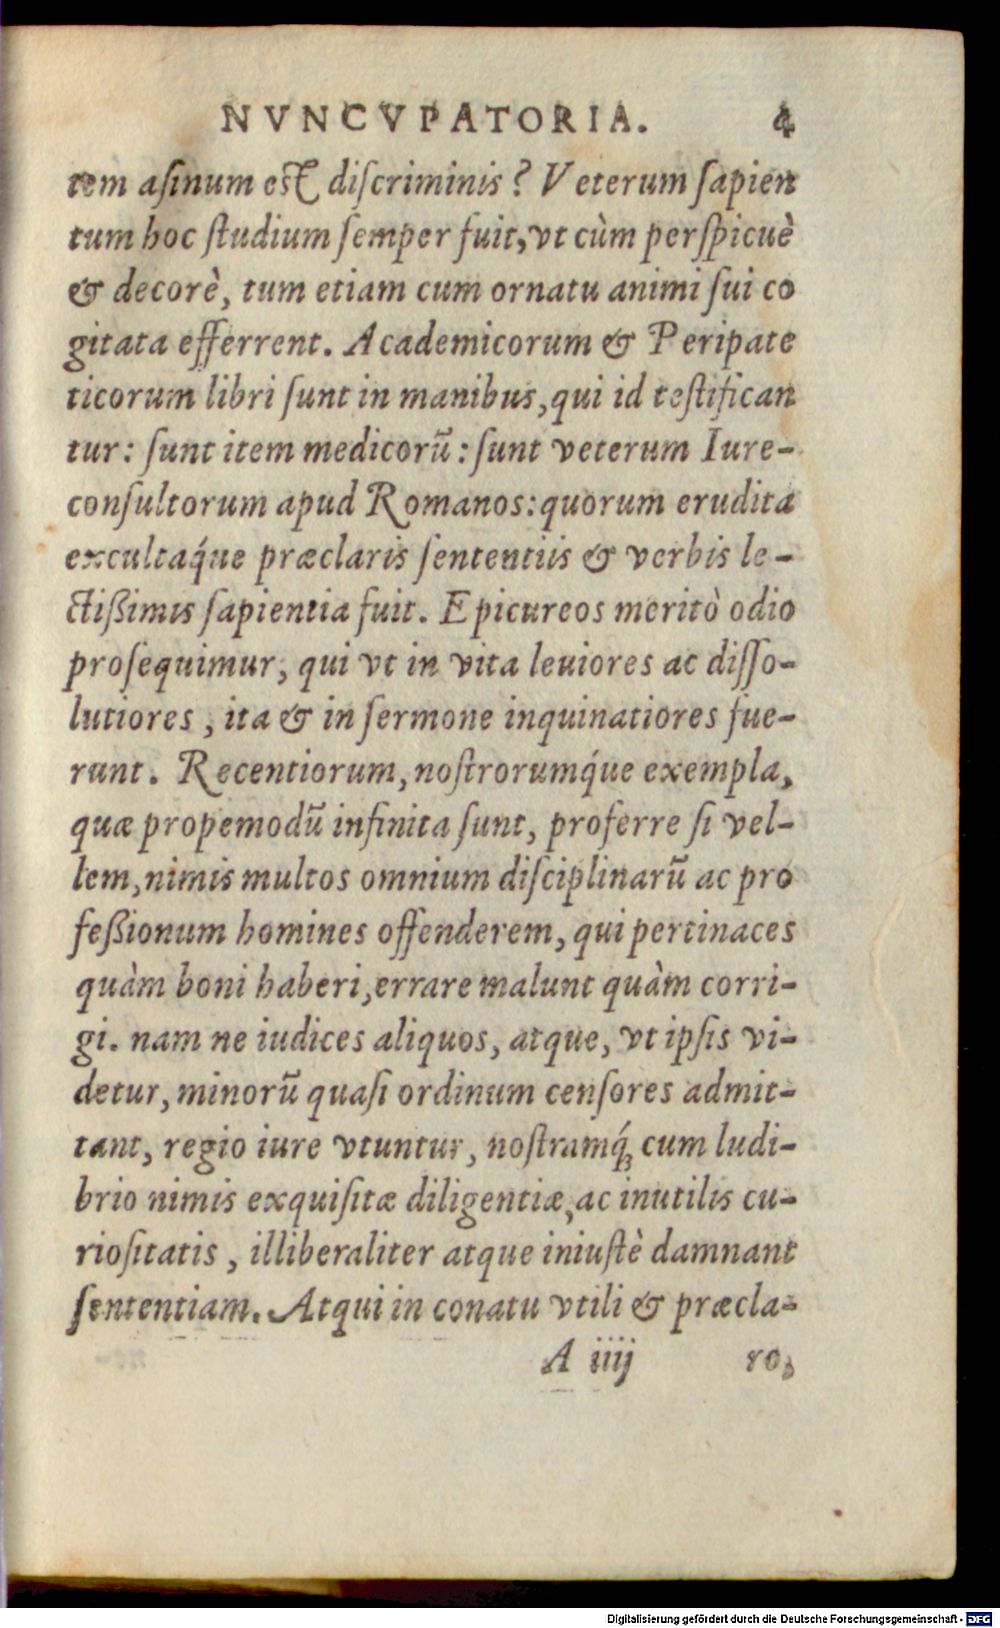 NVNCVPATORIA. 4
tem asinum est discriminis? Veterum sapien
tum hoc studium semper fuit, vt cùm perspicuè
& decorè, tum etiam cum ornatu animi sui co
gitata efferrent. Academicorum & Peripate
ticorum libri sunt in manibus, qui id testifican
tur: sunt item medicorũ: sunt veterum Iure-
consultorum apud Romanos: quorum erudita
excultaq́ue præclaris sententiis & verbis le-
ctißimis sapientia fuit. Epicureos meritò odio
prosequimur, qui vt in vita leuiores ac disso-
lutiores, ita & in sermone inquinatiores fue-
runt. Recentiorum, nostrorumq́ue exempla,
quæ propemodũ infinita sunt, proferre si vel-
lem, nimis multos omnium disciplinarũ ac pro
feßionum homines offenderem, qui pertinaces
quàm boni haberi, errare malunt quàm corri-
gi. nam ne iudices aliquos, atque, vt ipsis vi-
detur, minorũ quasi ordinum censores admit-
tant, regio iure vtuntur, nostramq́ꝫ cum ludi-
brio nimis exquisitæ diligentiæ, ac inutilis cu-
riositatis, illiberaliter atque iniustè damnant
sententiam. Atqui in conatu vtili & præcla-
A iiij ro,
Digitalisierung gefördert durch die Deutsche Forschungsgemeinschaft - DFG